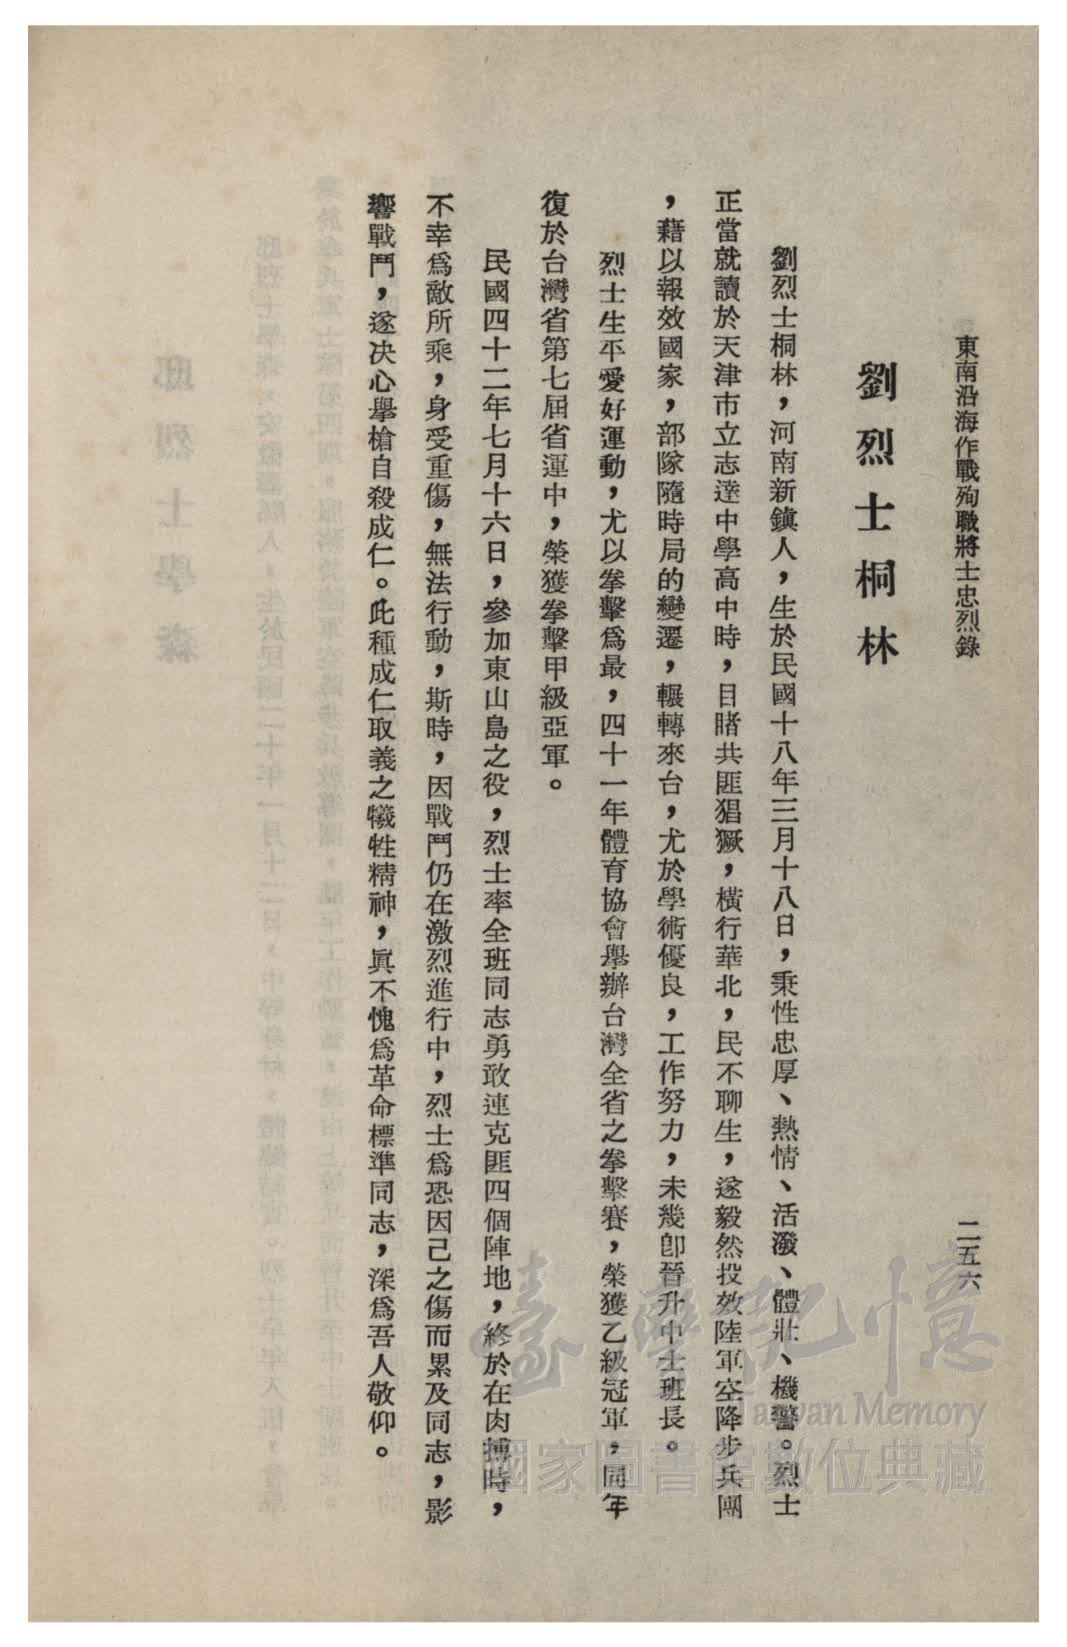 東南沿海作戰殉職將士忠烈錄
二五六
劉烈士桐林
劉烈士桐林，河南新鎮人，生於民國十八年三月十八日，秉性忠厚、熱情、活潑、體壯、機警。烈士
正當就讀於天津市立志達中學高中時，目睹共匪猖獗，橫行華北，民不聊生，遂毅然投效陸軍空降步兵團
，藉以報效國家，部隊隨時局的變遷，輾轉來台，尤於學術優良，工作努力，未幾卽晉升中士班長。
烈士生平愛好運動，尤以拳擊爲最，四十一年體育協會舉辦台灣全省之拳擊賽，榮獲乙級冠軍，同年
復於台灣省第七屆省運中，榮獲拳擊甲級亞軍。
民國四十二年七月十六日，參加東山島之役，烈士率全班同志勇敢連克匪四個陣地，終於在肉搏時，
不幸爲敵所乘，身受重傷，無法行動，斯時，因戰鬥仍在激烈進行中，烈士爲恐因己之傷而累及同志，影
響戰鬥，遂決心舉槍自殺成仁。此種成仁取義之犧牲精神，眞不愧爲革命標準同志，深爲吾人敬仰。
臺灣記憶
Taiwan Memory
國家圖書館數位典藏